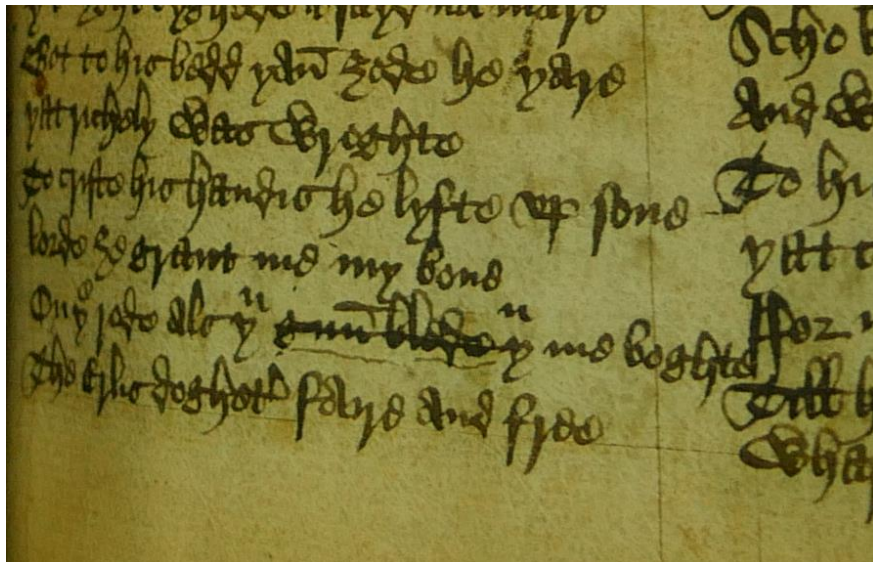 Bot to his bedd þan̄ ȝode he þare
þat richely was wroghte
To criste his handis he lyfte vp sone
lorde ȝe grant me my bone
On þe rode als þu þu me boghte
The Erlis doghter faire and free
Scho
And
To
þat
ffor
Till